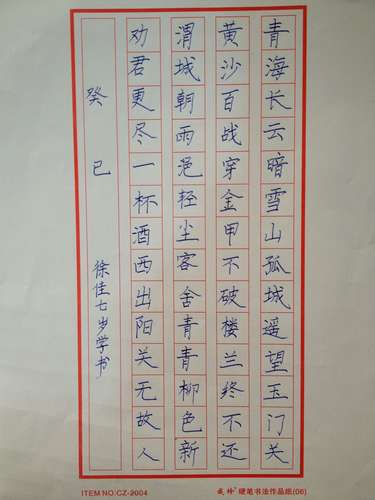 青海长云暗雪山孤城遥望玉门关
黄沙百战穿金甲不破楼兰终不还
渭城朝雨浥轻尘客舍青青柳色新
劝君更尽一杯酒西出阳关无故人
癸巳
徐佳七岁学书
ITEM NO:CZ-2004
硬笔书法作品纸(06)